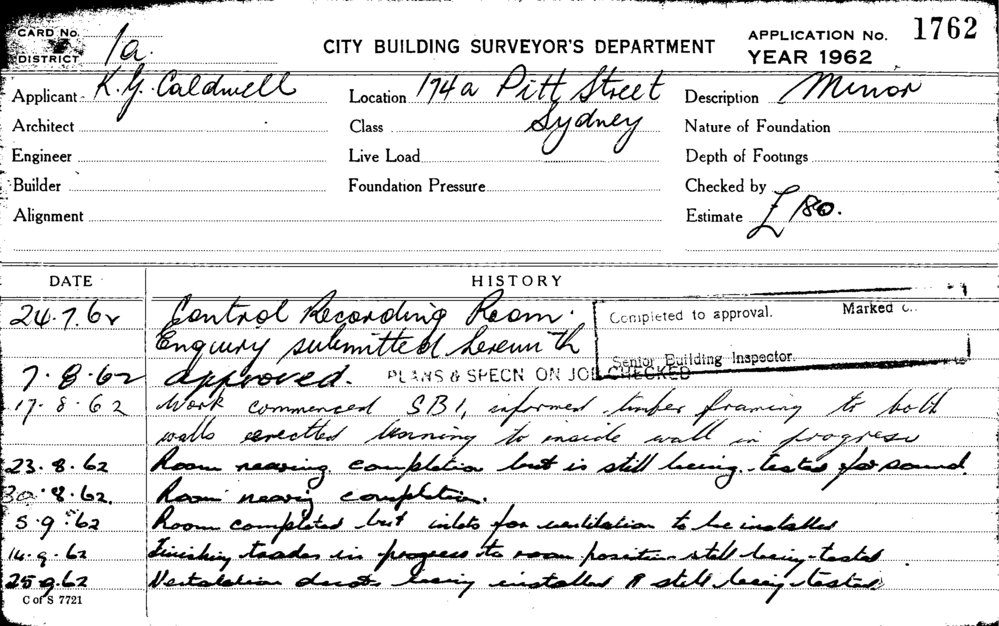 CARD No.
DISTRICT 1a.
CITY BUILDING SURVEYOR'S DEPARTMENT
APPLICATION No. 1762
YEAR 1962
Applicant K. G. Caldwell
Location 174a Pitt Street
Sydney
Description Minor
Architect
Class
Nature of Foundation
Engineer
Live Load
Depth of Footings
Builder
Foundation Pressure
Checked by
Alignment
Estimate £180.
DATE
HISTORY
24.7.62 Control Recording Room.
Enquiry submitted herewith
Completed to approval. Marked
Senior Building Inspector.
7.8.62 approved. PLANS & SPECN ON JOB CHECKED
17.8.62 Work commenced SB1, informed timber framing to both
walls erected to inside wall in progress
23.8.62 Room nearing completion but is still being tested for sound.
30.8.62. Room nearing completion.
5.9.62 Room completed but inlets for ventilation to be installed
14.9.62 Finishing trades in progress to room still being tested
25.9.62 Ventilation ducts being installed & still being tested.
C of S 7721